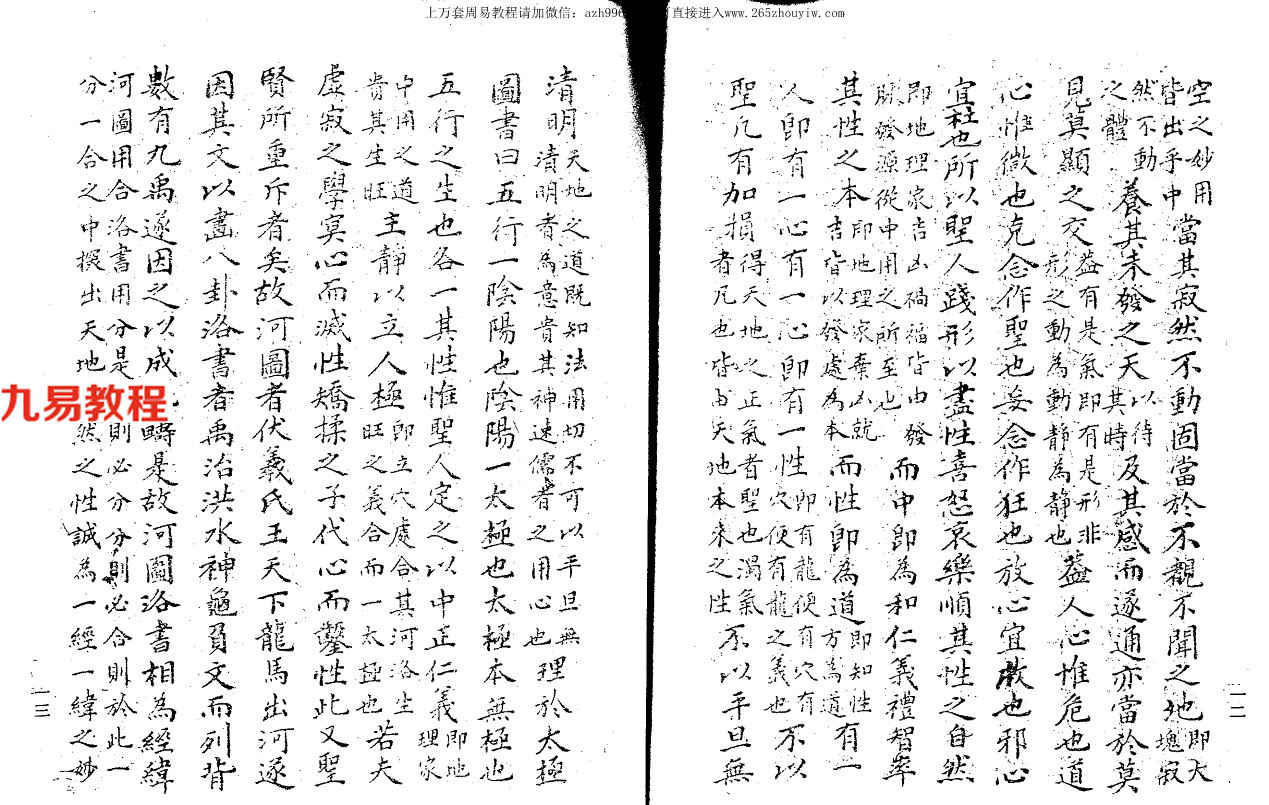 上万套周易教程请加微信：azh996 直接进入www.265zhouyiw.com
空之妙用
皆出乎中
然不動
之體
當其寂然不動固當於不覩不聞之地
即大
塊寂
養其未發之天
以待
其時
及其感而遂通亦當於莫
見莫顯之交
益有是氣即有是形非
形之動為動靜為靜也
蓋人心惟危也道
心惟微也克念作聖也妄念作狂也放心宜救也邪心
宜杜也所以聖人踐形以盡性喜怒哀樂順其性之自然
即地理家吉凶禍福皆由發
脉發源從中用之所至也
而中即為和仁義禮智率
其性之本
即地理家棄凶就
吉皆以發處為本
而性即為道
即知性
方為道
有一
人即有一心有一心即有一性
即有龍便有穴有
穴便有龍之義也
不以
聖凡有加損
得天地之正氣者聖也濁氣
者凡也皆由天地本来之性
不以平旦無
一二
清明
天地之道既知法用切不可以平旦無
清明者為意貴其神速儒者之用心也
理於太極
圖書曰五行一陰陽也陰陽一太極也太極本無極也
五行之生也各一其性惟聖人定之以中正仁義
即地
理家
中用之道
貴其生旺
主靜以立人極
即立穴處合其河洛生
旺之義合而一太極也
若夫
虛寂之學冥心而滅性矯揉之子代心而鑿性此又聖
賢所重斥者矣故河圖者伏羲氏王天下龍馬出河遂
因其文以畫八卦洛書者禹治洪水神龜負文而列背
數有九禹遂因之以成九疇是故河圖洛書相為經緯
河圖用合洛書用分是則必分分則必合則於此一
分一合之中撰出天地然之性誠為一經一緯之妙
一三
九易教程